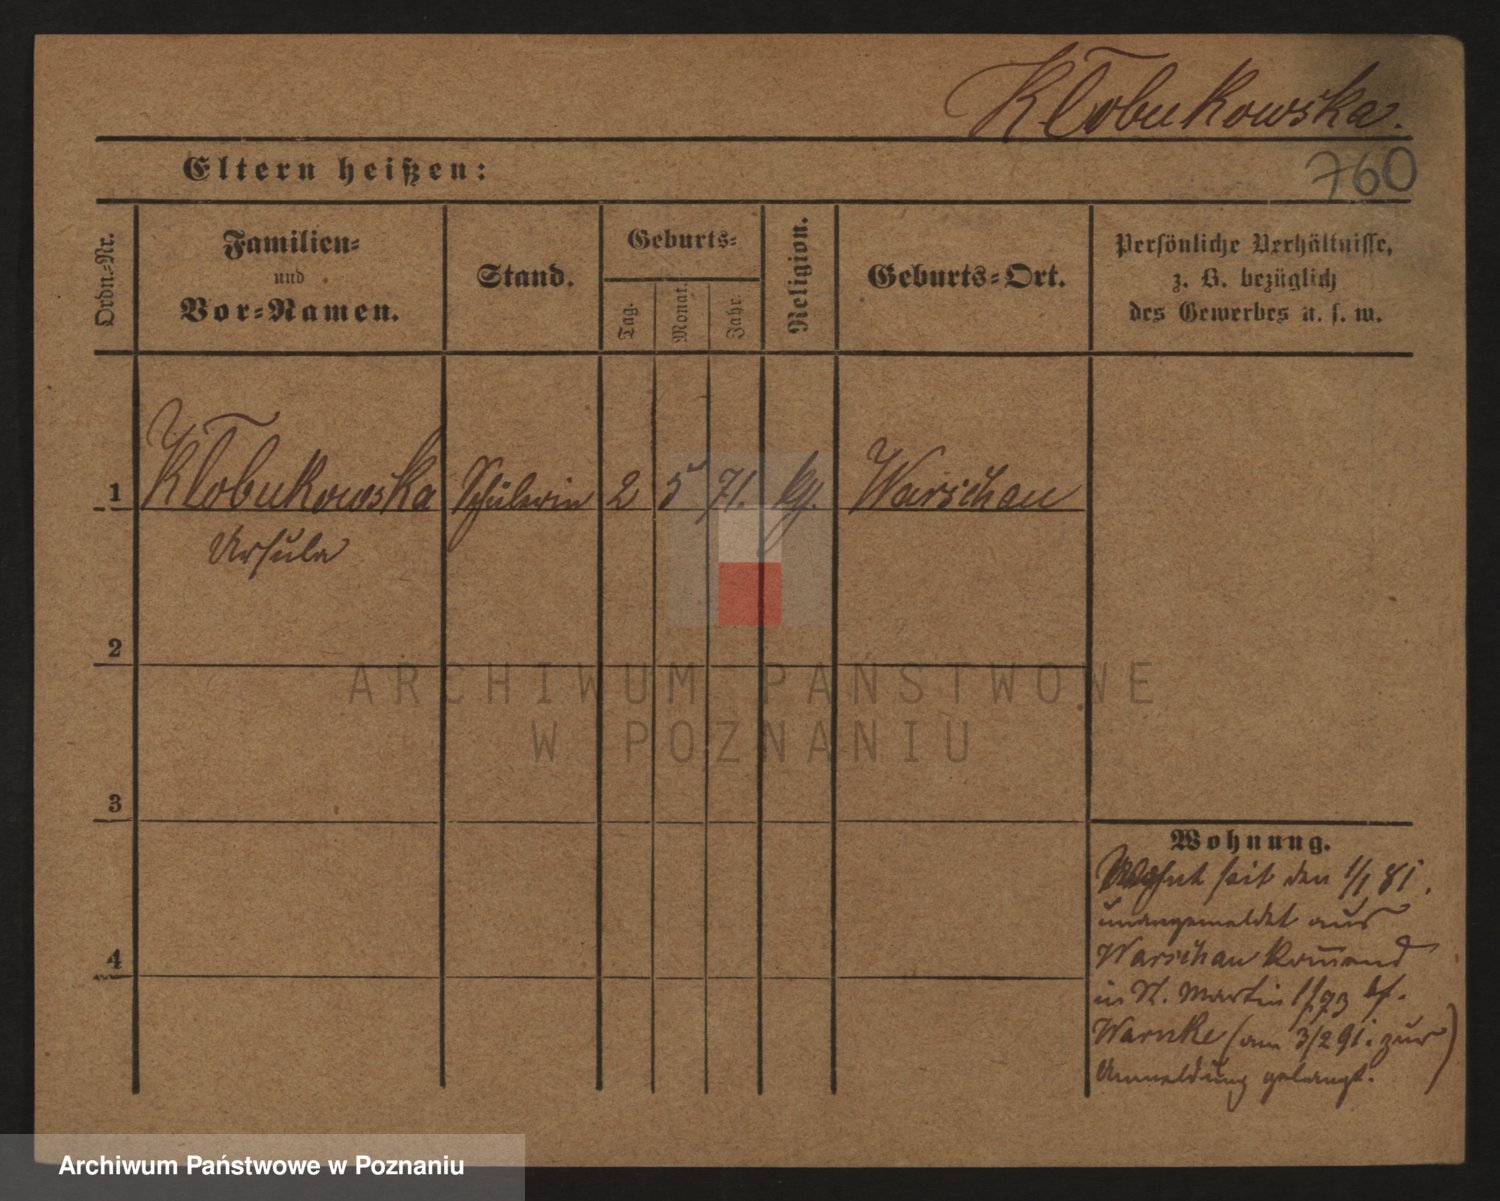 Kłobukowska.
Eltern heißen:
760
Ordn.-Nr.
Familien-
und
Vor-Namen.
Stand.
Geburts-
Tag.
Monat.
Jahr.
Religion.
Geburts-Ort.
Persönliche Verhältnisse,
z. B. bezüglich
des Gewerbes u. s. w.
1 Kłobukowska Schülerin 2 5 71. kth. Warschau
Ursula
2
3
4
Wohnung.
Wohnt seit den 1/1 81.
unangemeldet aus
Warschau kommend
in St. Martin
Warnke (am 3/2 91. zur
Anmeldung gelangt.)
ARCHIWUM PAŃSTWOWE
W POZNANIU
Archiwum Państwowe w Poznaniu